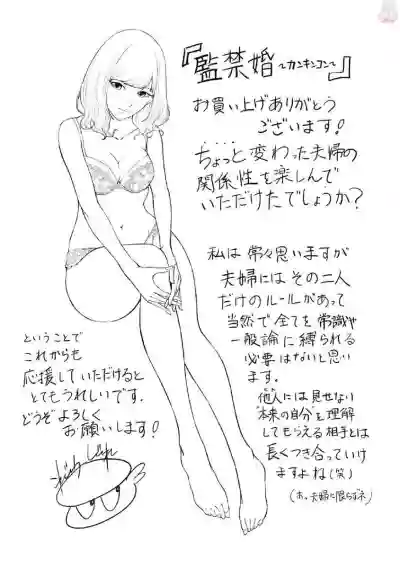 『監禁婚〜カンキンコン〜』
お買い上げありがとう
ございます!
ちょっと変わった夫婦の
関係性を楽しんで
いただけたでしょうか?
私は常々思いますが
夫婦にはその二人
だけのルールがあって
当然で全てを常識や
一般論に縛られる
必要はないと思い
ます。
他人には見せない
"本来の自分"を理解
してもらえる相手とは
長くつき合っていけ
ますよね(笑)
(あ、夫婦に限らずネ)
ということで
これからも
応援していただけると
とてもうれしいです。
どうぞよろしく
お願いします!